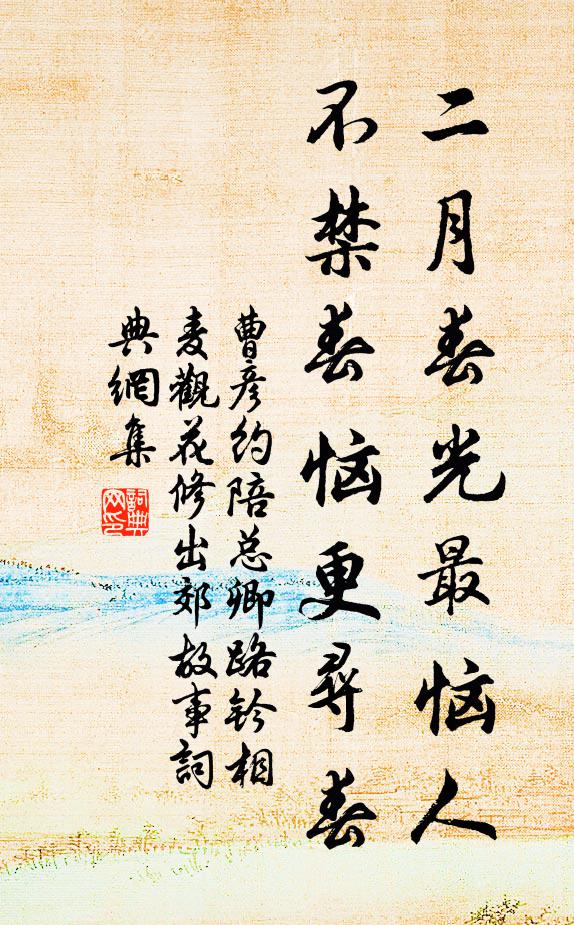 二月春光最恼人
不禁春恼更寻春
曹彦约陪总卿路钤相
麦觀花修出郊故事詞
典網集
詞典网印